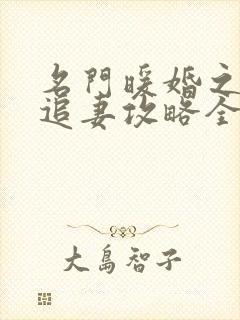 名門暖婚之
追妻攻略全
大島智子